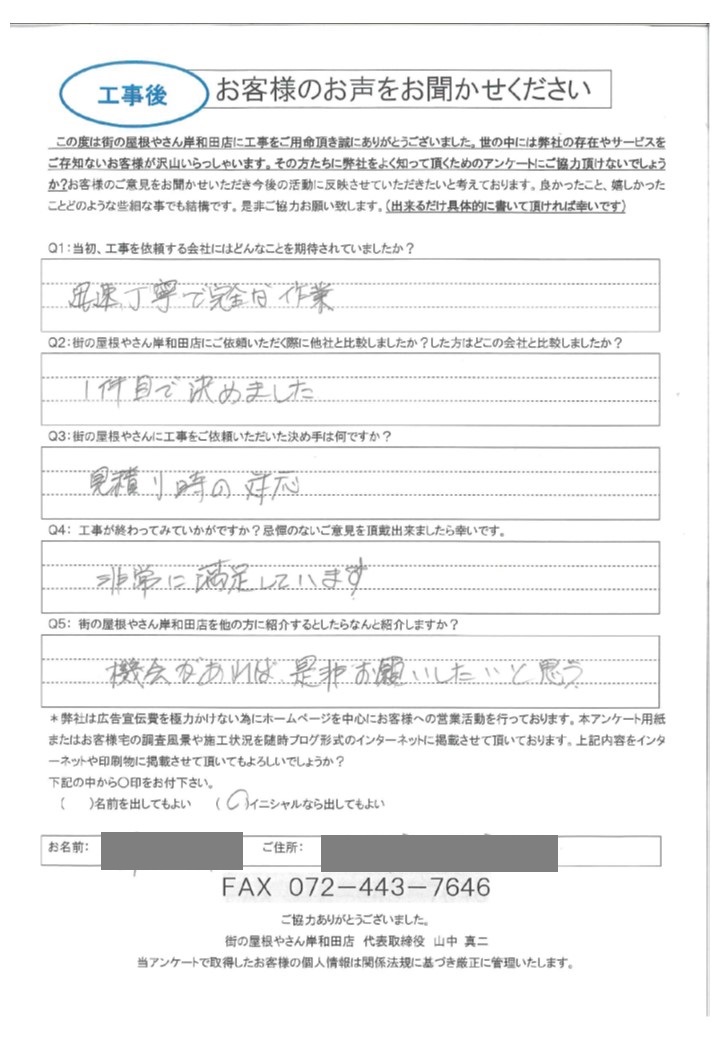 工事後
お客様のお声をお聞かせください
この度は街の屋根やさん岸和田店に工事をご用命頂き誠にありがとうございました。世の中には弊社の存在やサービスを
ご存知ないお客様が沢山いらっしゃいます。その方たちに弊社をよく知って頂くためのアンケートにご協力頂けないでしょう
か?お客様のご意見をお聞かせいただき今後の活動に反映させていただきたいと考えております。良かったこと、嬉しかった
ことどのような些細な事でも結構です。是非ご協力お願い致します。(出来るだけ具体的に書いて頂ければ幸いです)
Q1:当初、工事を依頼する会社にはどんなことを期待されていましたか?
迅速、丁寧で完全な作業
Q2:街の屋根やさん岸和田店にご依頼いただく際に他社と比較しましたか?した方はどこの会社と比較しましたか?
1件目で決めました
Q3:街の屋根やさんに工事をご依頼いただいた決め手は何ですか?
見積り時の対応
Q4: 工事が終わってみていかがですか?忌憚のないご意見を頂戴出来ましたら幸いです。
非常に満足しています
Q5: 街の屋根やさん岸和田店を他の方に紹介するとしたらなんと紹介しますか?
機会があれば是非お願いしたいと思う
*弊社は広告宣伝費を極力かけない為にホームページを中心にお客様への営業活動を行っております。本アンケート用紙
またはお客様宅の調査風景や施工状況を随時ブログ形式のインターネットに掲載させて頂いております。上記内容をインタ
ーネットや印刷物に掲載させて頂いてもよろしいでしょうか?
下記の中から〇印をお付下さい。
( )名前を出してもよい (〇)イニシャルなら出してもよい
お名前: ご住所:
FAX 072-443-7646
ご協力ありがとうございました。
街の屋根やさん岸和田店 代表取締役 山中 真二
当アンケートで取得したお客様の個人情報は関係法規に基づき厳正に管理いたします。